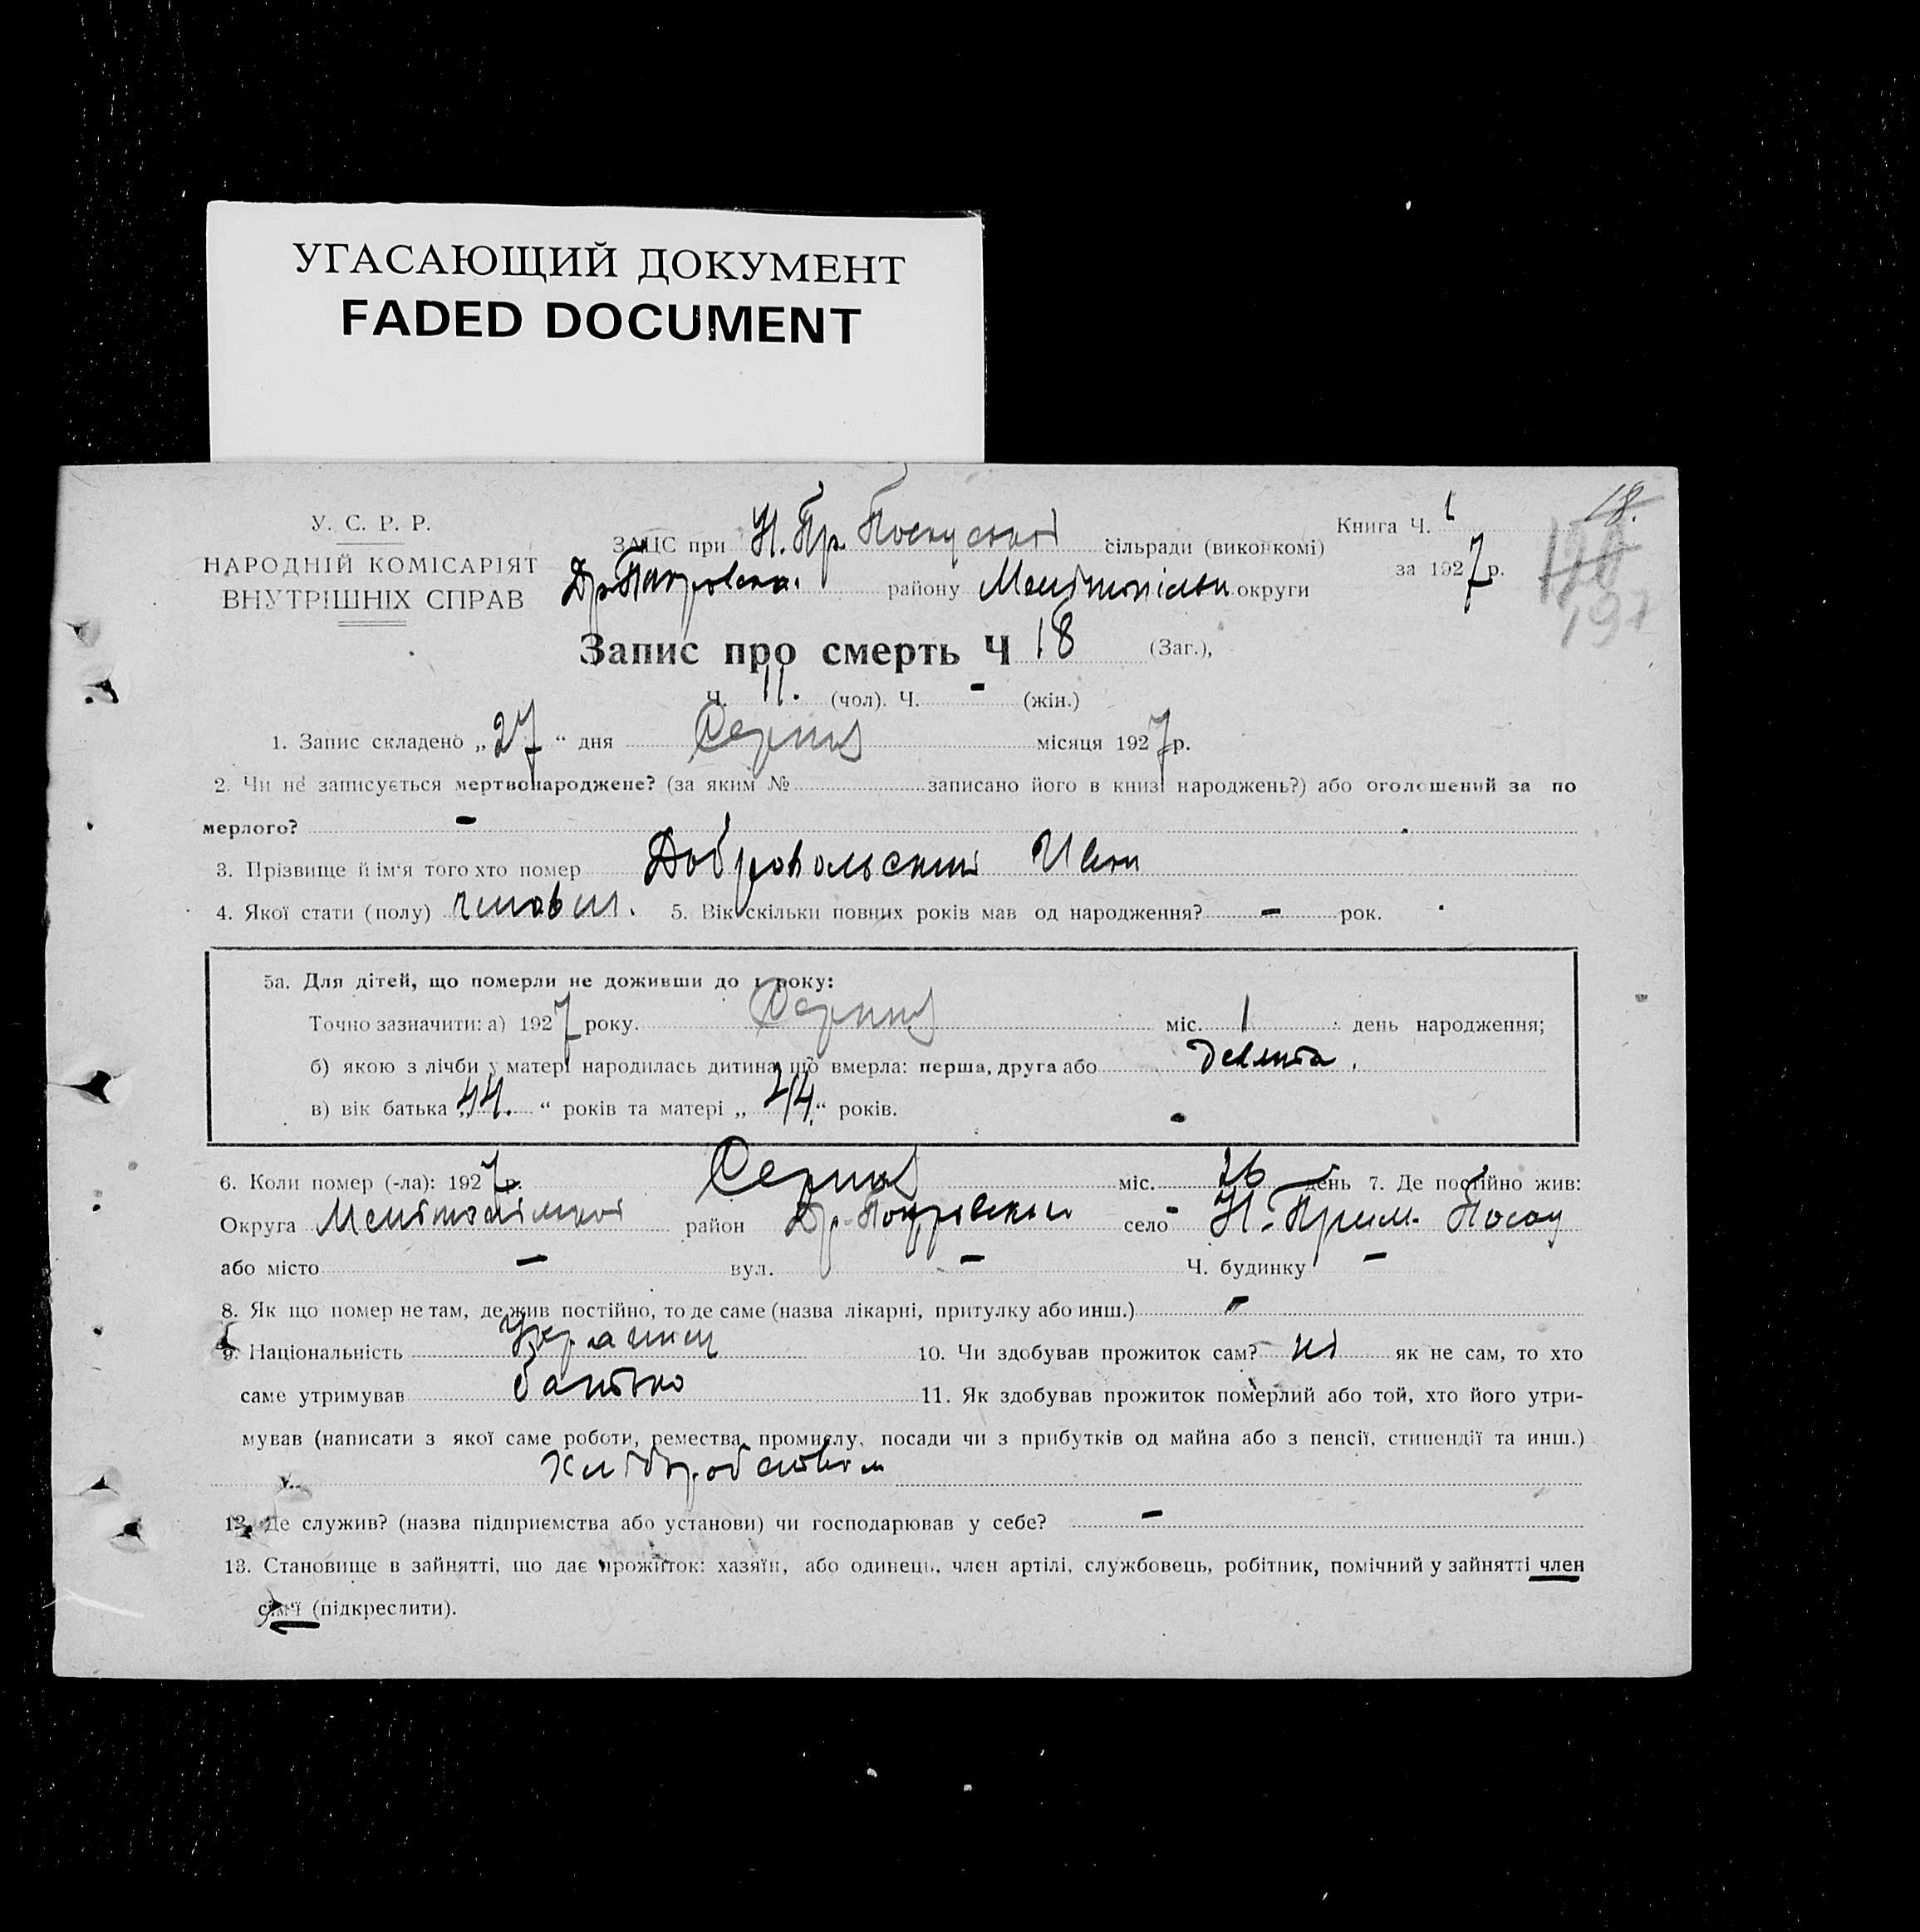 УГАСАЮЩИЙ ДОКУМЕНТ
FADED DOCUMENT
18.
У. С. Р. Р.
НАРОДНІЙ КОМІСАРІЯТ
ВНУТРІШНІХ СПРАВ
ЗАЦС при Н. Пр. сільради (виконкомі)
Др. Покровськ. району Мелітопільськ округи
Книга Ч. 1
за 1927 р.
197
Запис про смерть Ч 18 (Заг.),
Ч. 11. (чол). Ч. - (жін.)
1. Запис складено „27“ дня Серпня місяця 1927 р.
2. Чи не записується мертвонароджене? (за яким № записано його в книзі народжень?) або оголошений за по
мерлого? -
3. Прізвище й ім'я того хто помер Добровольский Иван
4. Якої стати (полу) 5. Вік скільки повних років мав од народження? - рок.
5а. Для дітей, що померли не доживши до 1 року:
Точно зазначити: а) 1927 року. Серпня міс. 1 день народження;
б) якою з лічби у матері народилась дитина що вмерла: перша, друга або девята.
в) вік батька „44.“ років та матері „44“ років.
6. Коли помер (-ла): 1927 р. Серпня міс. 26 день 7. Де постійно жив:
Округа район Др-Покровський село Н. Прим. Посад
або місто - вул. - Ч. будинку -
8. Як що помер не там, де жив постійно, то де саме (назва лікарні, притулку або инш.) -
9. Національність Украинец 10. Чи здобував прожиток сам? ні як не сам, то хто
саме утримував батько 11. Як здобував прожиток померлий або той, хто його утри-
мував (написати з якої саме роботи, ремества, промислу, посади чи з прибутків од майна або з пенсії, стипендії та инш.)
Хліборобством
12. Де служив? (назва підприємства або установи) чи господарював у себе? -
13. Становище в зайнятті, що дає прожиток: хазяїн, або одинець, член артілі, службовець, робітник, помічний у зайнятті член
сім'ї (підкреслити).